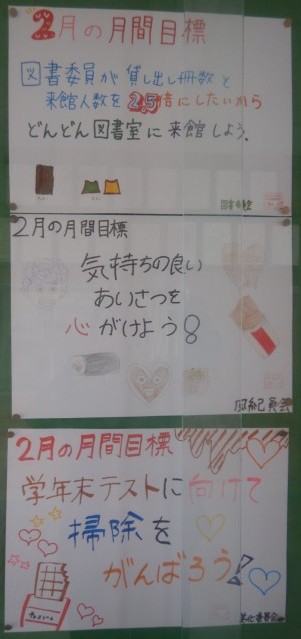 2月の月間目標
図書委員が貸し出し冊数と
来館人数を2.5倍にしたいから
どんどん図書室に来館しよう。
2月の月間目標
気持ちの良い
あいさつを
心がけよう
風紀委員会
2月の月間目標
学年末テストに向けて
掃除を
がんばろう!
美化委員会